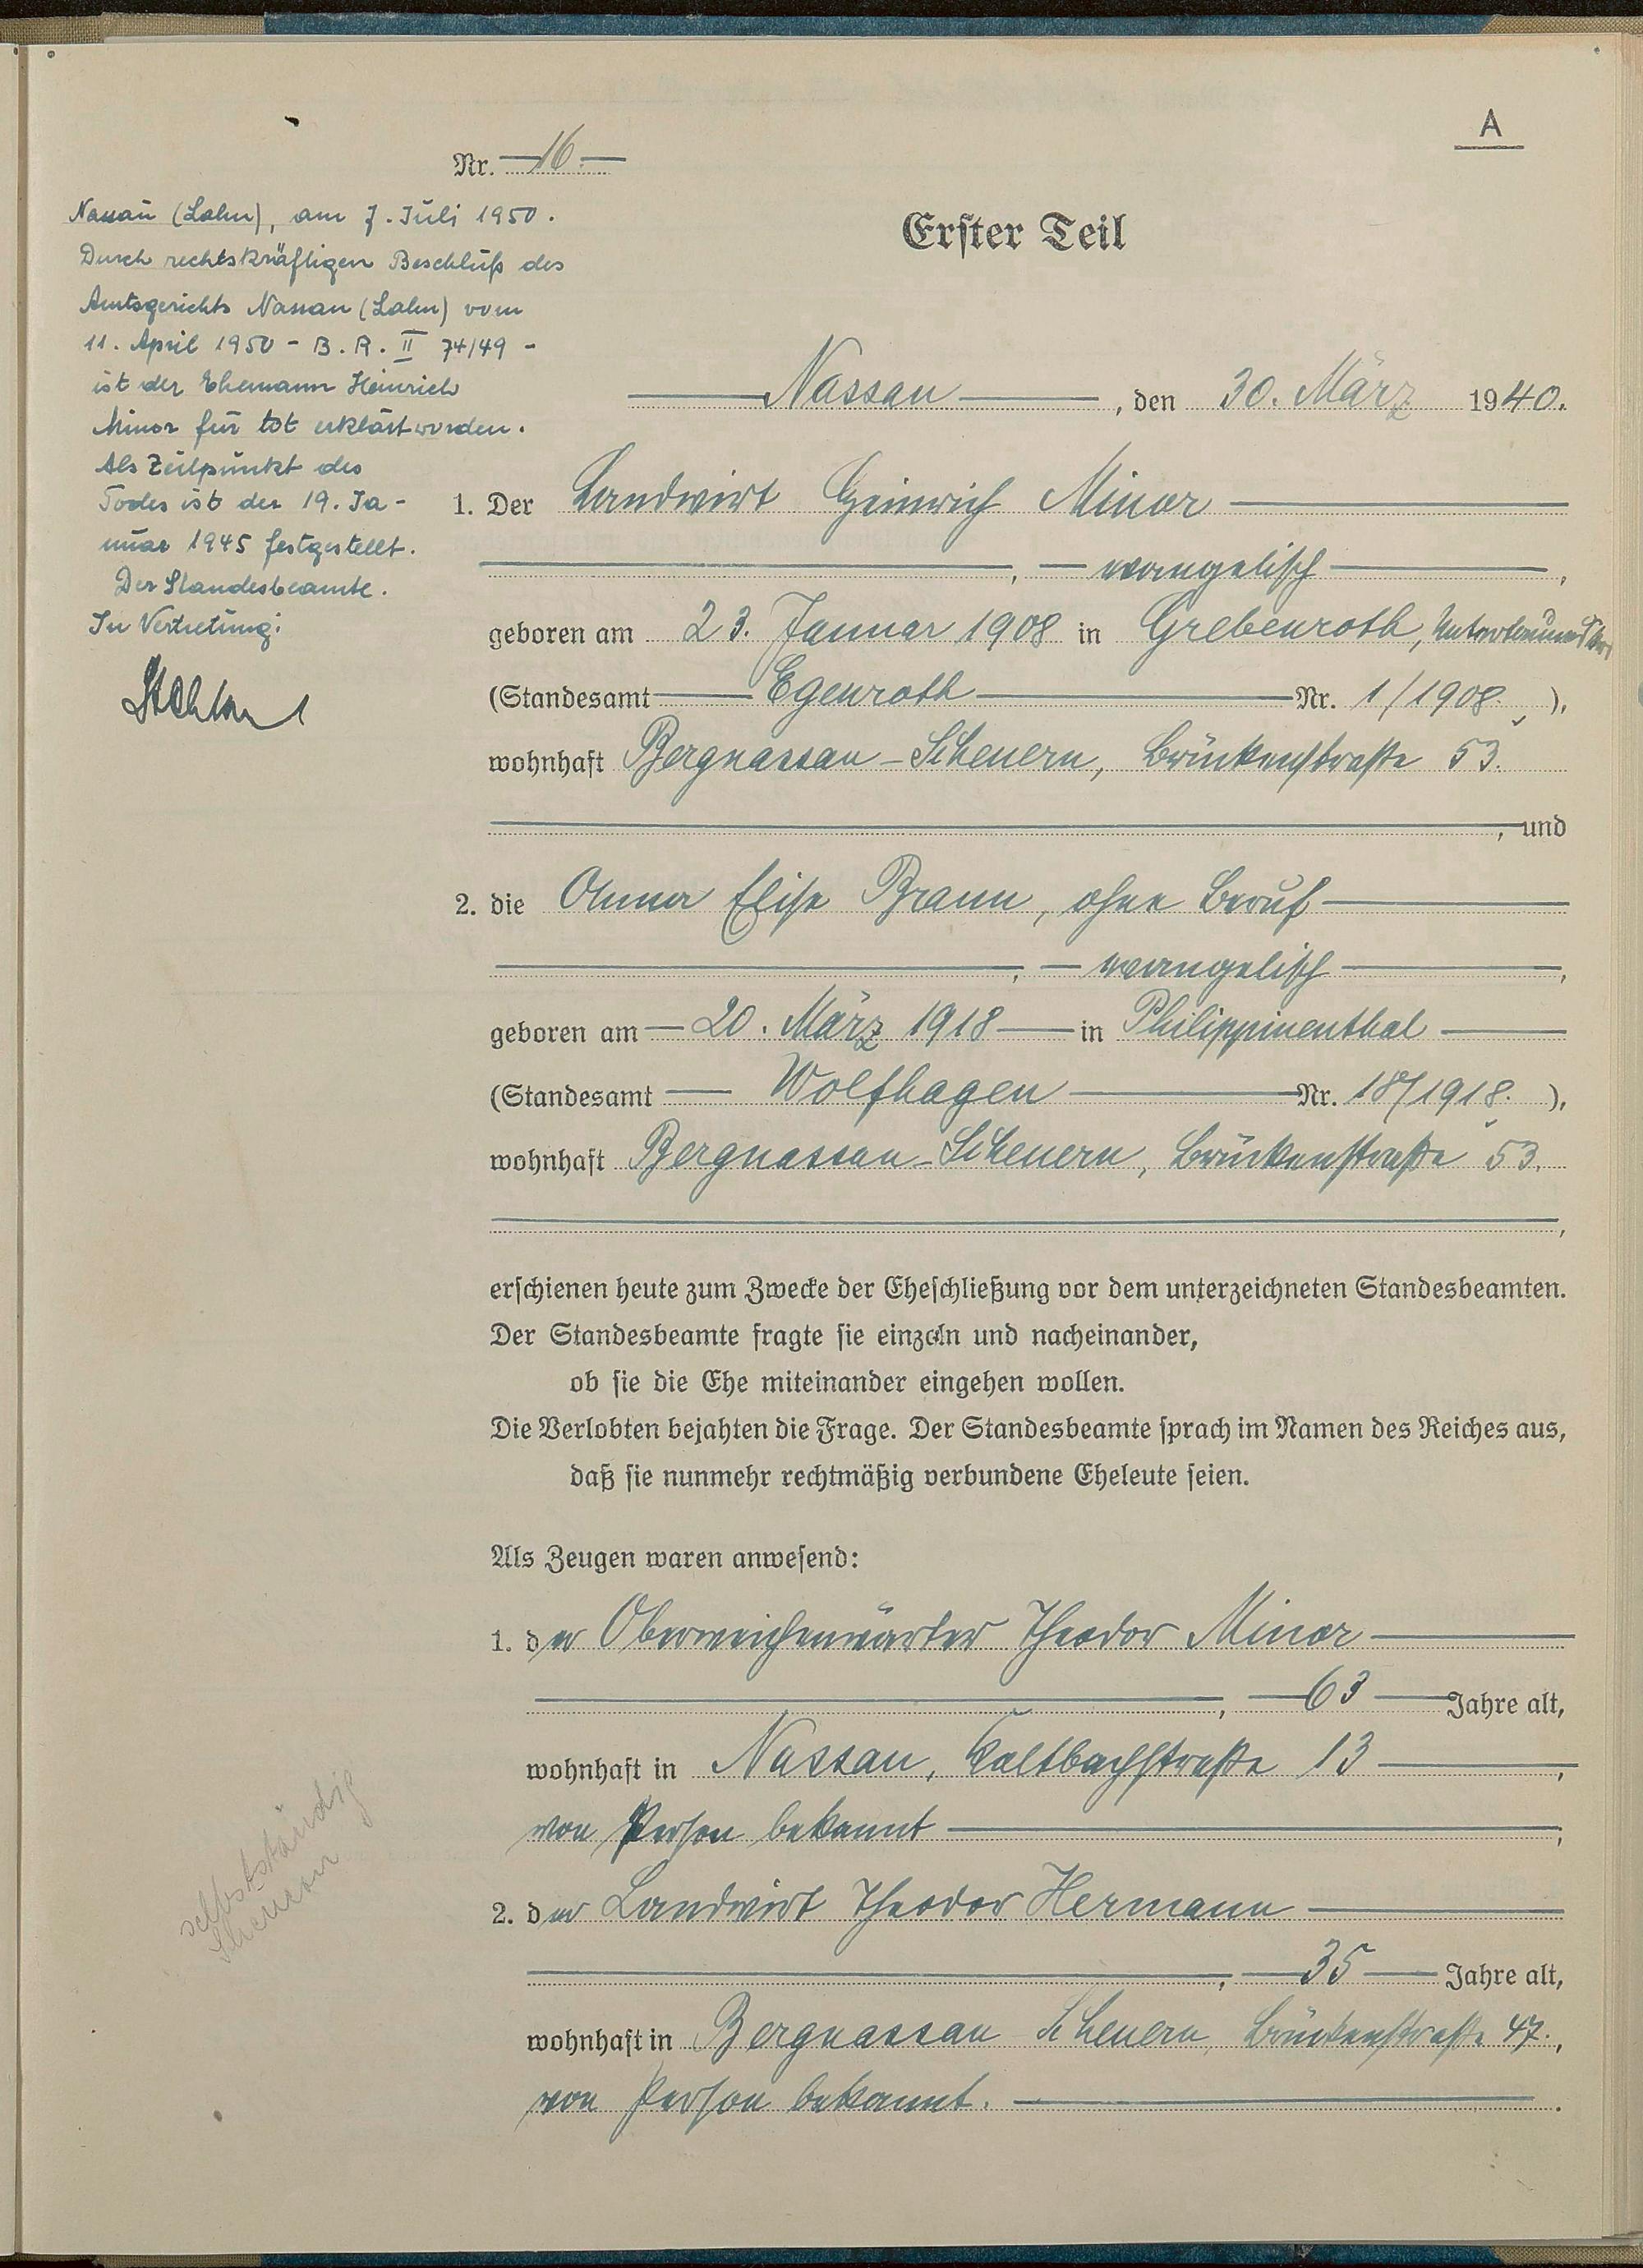 A
Nr. 16.
Nassau (Lahn), am 7. Juli 1950.
Durch rechtskräftigen Beschluß des
Amtsgerichts Nassau (Lahn) vom
11. April 1950 - B. R. II 74/49 -
ist der Ehemann Heinrich
Minor für tot erklärt worden.
Als Zeitpunkt des
Todes ist der 19. Ja-
nuar 1945 festgestellt.
Der Standesbeamte.
In Vertretung:
Erster Teil
Nassau, den 30. März 1940.
1. Der Landwirt Heinrich Minor
, evangelisch,
geboren am 23. Januar 1908 in Grebenroth,
(Standesamt Egenroth Nr. 1/1908.),
wohnhaft Bergnassau-Scheuern, Brückenstraße 53.
, und
2. die Anna Elise Braun, ohne Beruf
, evangelisch,
geboren am 20. März 1918 in Philippinenthal
(Standesamt Wolfhagen Nr. 18/1918.),
wohnhaft Bergnassau-Scheuern, Brückenstraße 53.
,
erschienen heute zum Zwecke der Eheschließung vor dem unterzeichneten Standesbeamten.
Der Standesbeamte fragte sie einzeln und nacheinander,
ob sie die Ehe miteinander eingehen wollen.
Die Verlobten bejahten die Frage. Der Standesbeamte sprach im Namen des Reiches aus,
daß sie nunmehr rechtmäßig verbundene Eheleute seien.
Als Zeugen waren anwesend:
1. der Oberweichenwärter Theodor Minor
, 63 Jahre alt,
wohnhaft in Nassau, Kaltbachstraße 13,
von Person bekannt;
2. der Landwirt Theodor Hermann
, 35 Jahre alt,
wohnhaft in Bergnassau Scheuern, Brückenstraße 47.,
von Person bekannt.
selbstständig